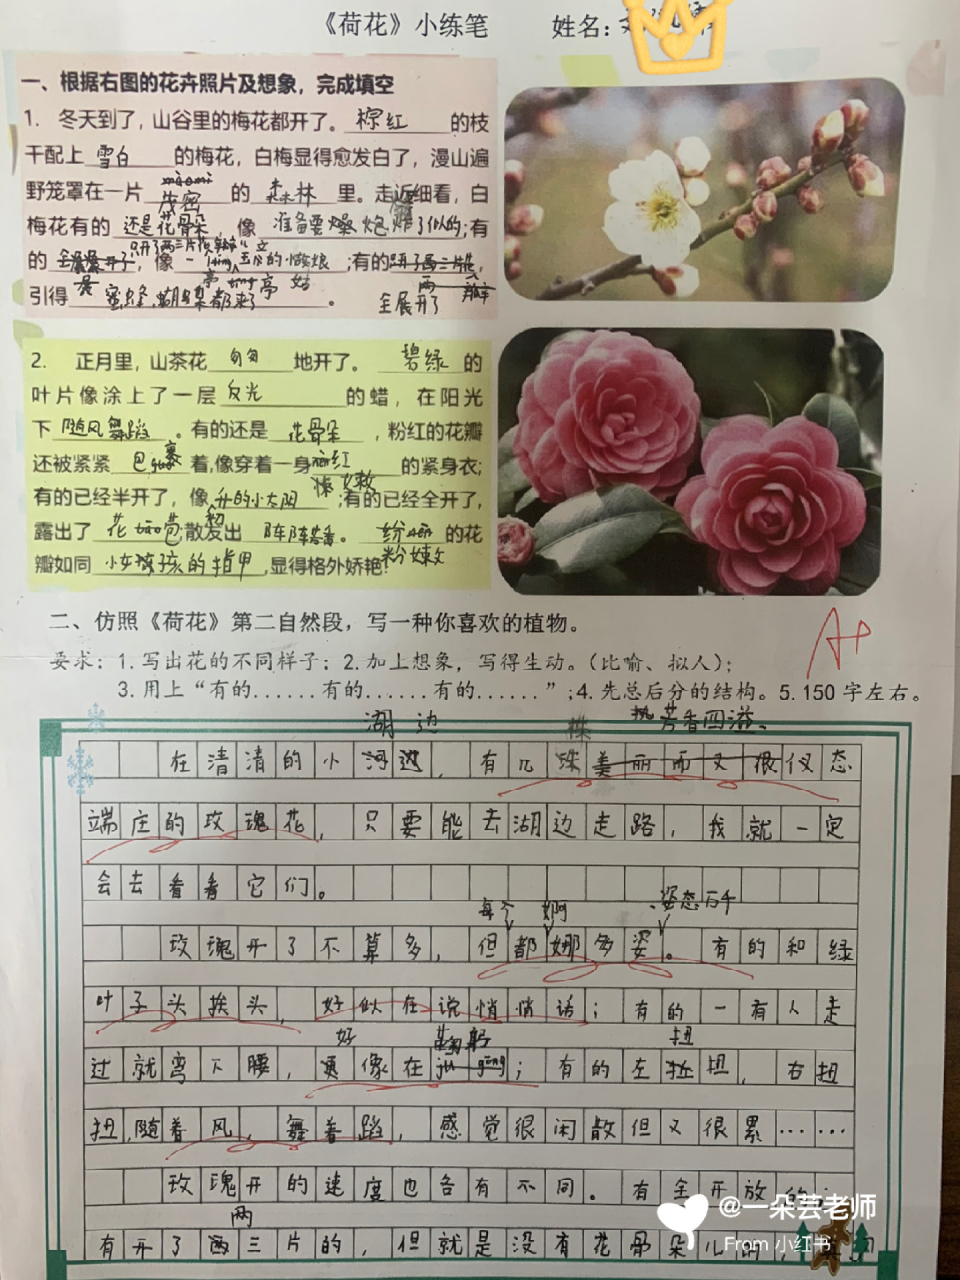 《荷花》小练笔 姓名：
一、根据右图的花卉照片及想象，完成填空
1. 冬天到了，山谷里的梅花都开了。棕红的枝
干配上 雪白 的梅花，白梅显得愈发白了，漫山遍
野笼罩在一片 茂密 的 森林 里。走近细看，白
梅花有的 还是花骨朵，像 准备要爆炮炸了似的；有
的 只开了两三片花瓣，像 亭亭玉立的小姑娘；有的
引得 蜜蜂，蝴蝶都来了。 全展开了
2. 正月里，山茶花 匆匆 地开了。 碧绿 的
叶片像涂上了一层 反光 的蜡，在阳光
下 随风舞蹈 。有的还是 花骨朵 ，粉红的花瓣
还被紧紧 包裹 着,像穿着一身 的紧身衣;
有的已经半开了，像 升的小太阳 ;有的已经全开了，
露出了 花苞,散发出 阵阵香。 粉嫩 的花
瓣如同 小女孩的指甲 ,显得格外娇艳!
二、仿照《荷花》第二自然段，写一种你喜欢的植物。
A+
要求：1.写出花的不同样子；2.加上想象，写得生动。（比喻、拟人）；
3.用上“有的......有的......有的......”;4.先总后分的结构。5.150字左右。
湖边 株 芳香四溢、
在清清的小 ，有几 仪态
端庄的玫瑰花，只要能去湖边走路，我就一定
会去看看它们。
每个 婀 、姿态万千
玫瑰开了不算多，但都娜多姿。有的和绿
叶子头挨头，好似在说悄悄话；有的一有人走
好 鞠躬 扭
过就弯下腰，像在 ；有的左 扭，右扭
扭,随着风，舞着蹈，感觉很闲散但又很累……
玫瑰开的速度也各有不同。有全开放的；
两
有开了 三片的，但就是没有花骨朵儿的，
@一朵芸老师
From 小红书